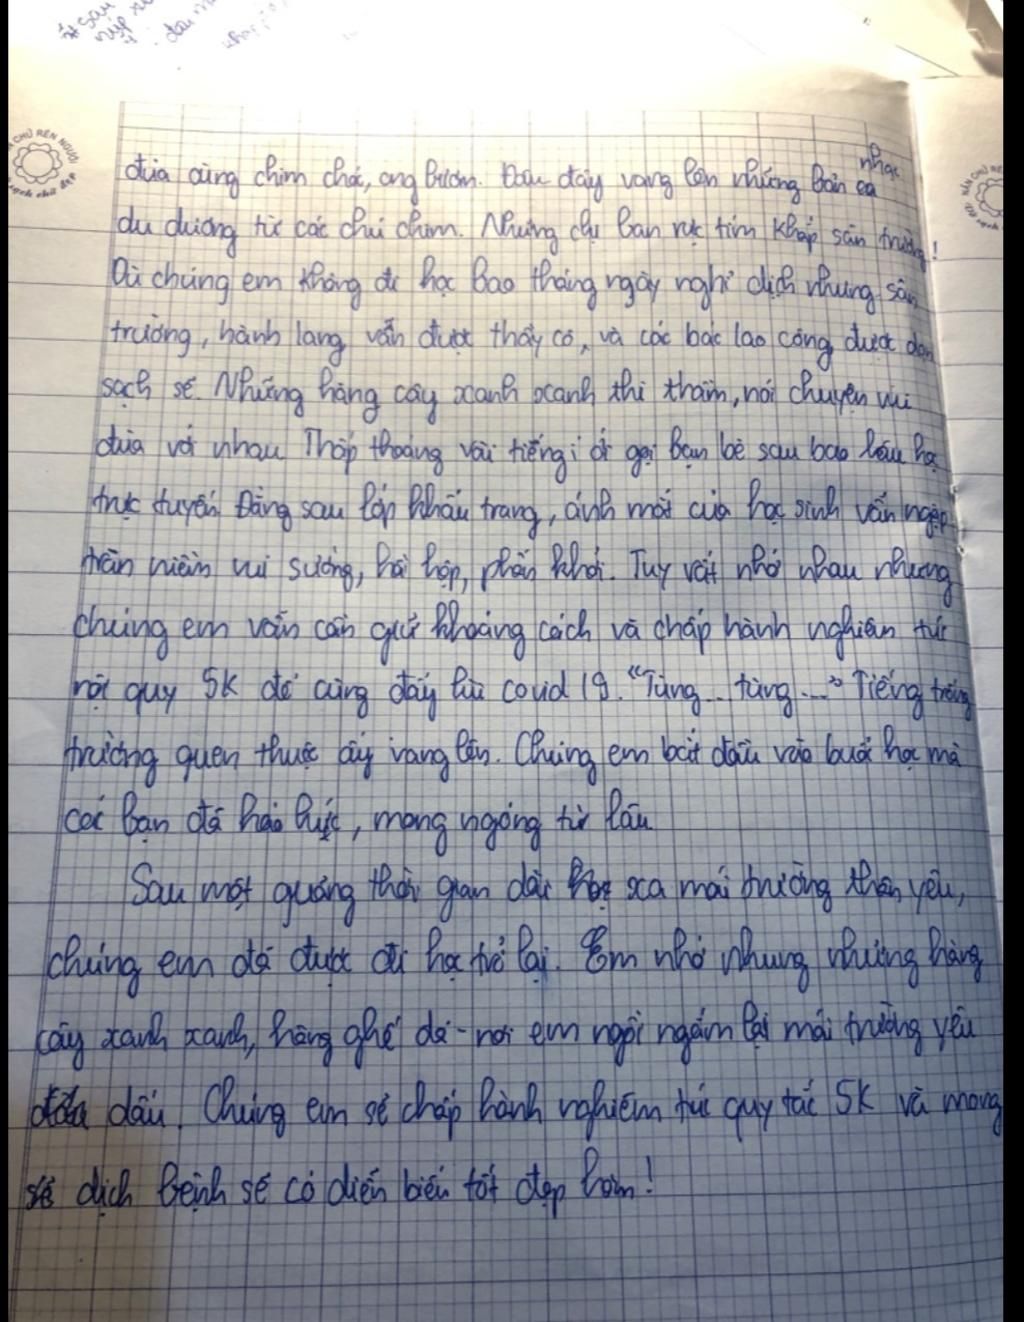 đùa cùng chim chóc, ong bướm. Đâu đây vang lên những bản ca nhạc
du dương từ các chú chim. Những cây ban rực tím khắp sân trường!
Dù chúng em không đi học bao tháng ngày nghỉ dịch nhưng sân
trường, hành lang vẫn được thầy cô, và các bác lao công được dọn
sạch sẽ. Những hàng cây xanh xanh thì thầm, nói chuyện vui
đùa với nhau. Thấp thoáng vài tiếng í ới gọi bạn bè sau bao lâu học
trực tuyến. Đằng sau lớp khẩu trang, ánh mắt của học sinh vẫn ngập
tràn niềm vui sướng, hồi hộp, phấn khởi. Tuy rất nhớ nhau nhưng
chúng em vẫn cần giữ khoảng cách và chấp hành nghiêm túc
nội quy 5K để cùng đẩy lùi covid 19. "Tùng... tùng..." Tiếng trống
trường quen thuộc ấy vang lên. Chúng em bắt đầu vào buổi học mà
các bạn đã háo hức, mong ngóng từ lâu
Sau một quãng thời gian dài xa mái trường thân yêu,
chúng em đã được đi học trở lại. Em nhớ nhung những hàng
cây xanh xanh, hàng ghế đá - nơi em ngồi ngắm lại mái trường yêu
dấu. Chúng em sẽ chấp hành nghiêm túc quy tắc 5K và mong
dịch bệnh sẽ có diễn biến tốt đẹp hơn!